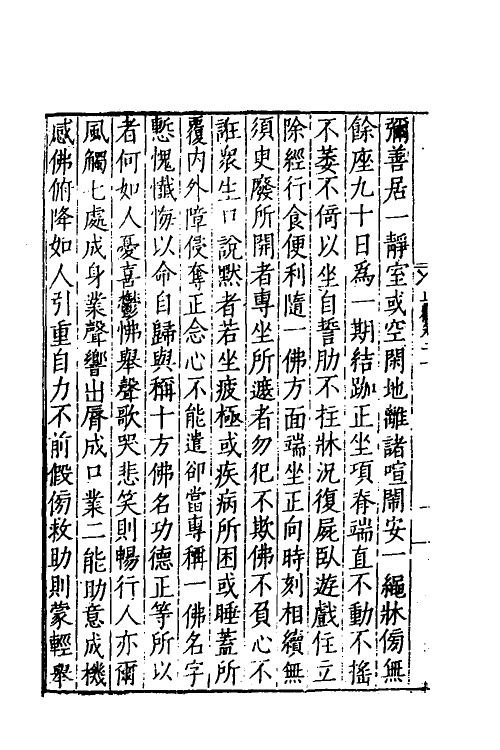 彌善居一靜室或空閑地離諸喧鬧安一繩牀傍無
餘座九十日爲一期結跏正坐項脊端直不動不搖
不萎不倚以坐自誓肋不拄牀況復屍臥遊戲住立
除經行食便利隨一佛方面端坐正向時刻相續無
須臾廢所開者專坐所遮者勿犯不欺佛不負心不
誑衆生口說默者若坐疲極或疾病所困或睡蓋所
覆內外障侵奪正念心不能遣卻當專稱一佛名字
慙愧懺悔以命自歸與稱十方佛名功德正等所以
者何如人憂喜鬱怫舉聲歌哭悲笑則暢行人亦爾
風觸七處成身業聲響出脣成口業二能助意成機
感佛俯降如人引重自力不前假傍救助則蒙輕舉